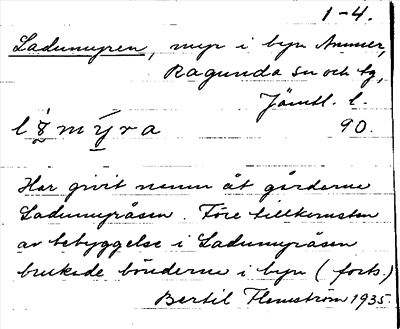 1-4.
Ladumyren, myr i byn Ammer,
Ragunda sn och tg,
Jämtl. l.
90.
Har givit namn åt gårderne
Ladumyråsen. Före tillkomsten
av bebyggelse i Ladumyråsen
brukade bönderne i byn (forts.)
Bertil Flemström 1935